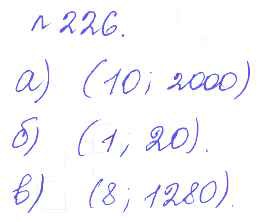 №226.
а) (10; 2000)
б) (1; 20).
в) (8; 1280).